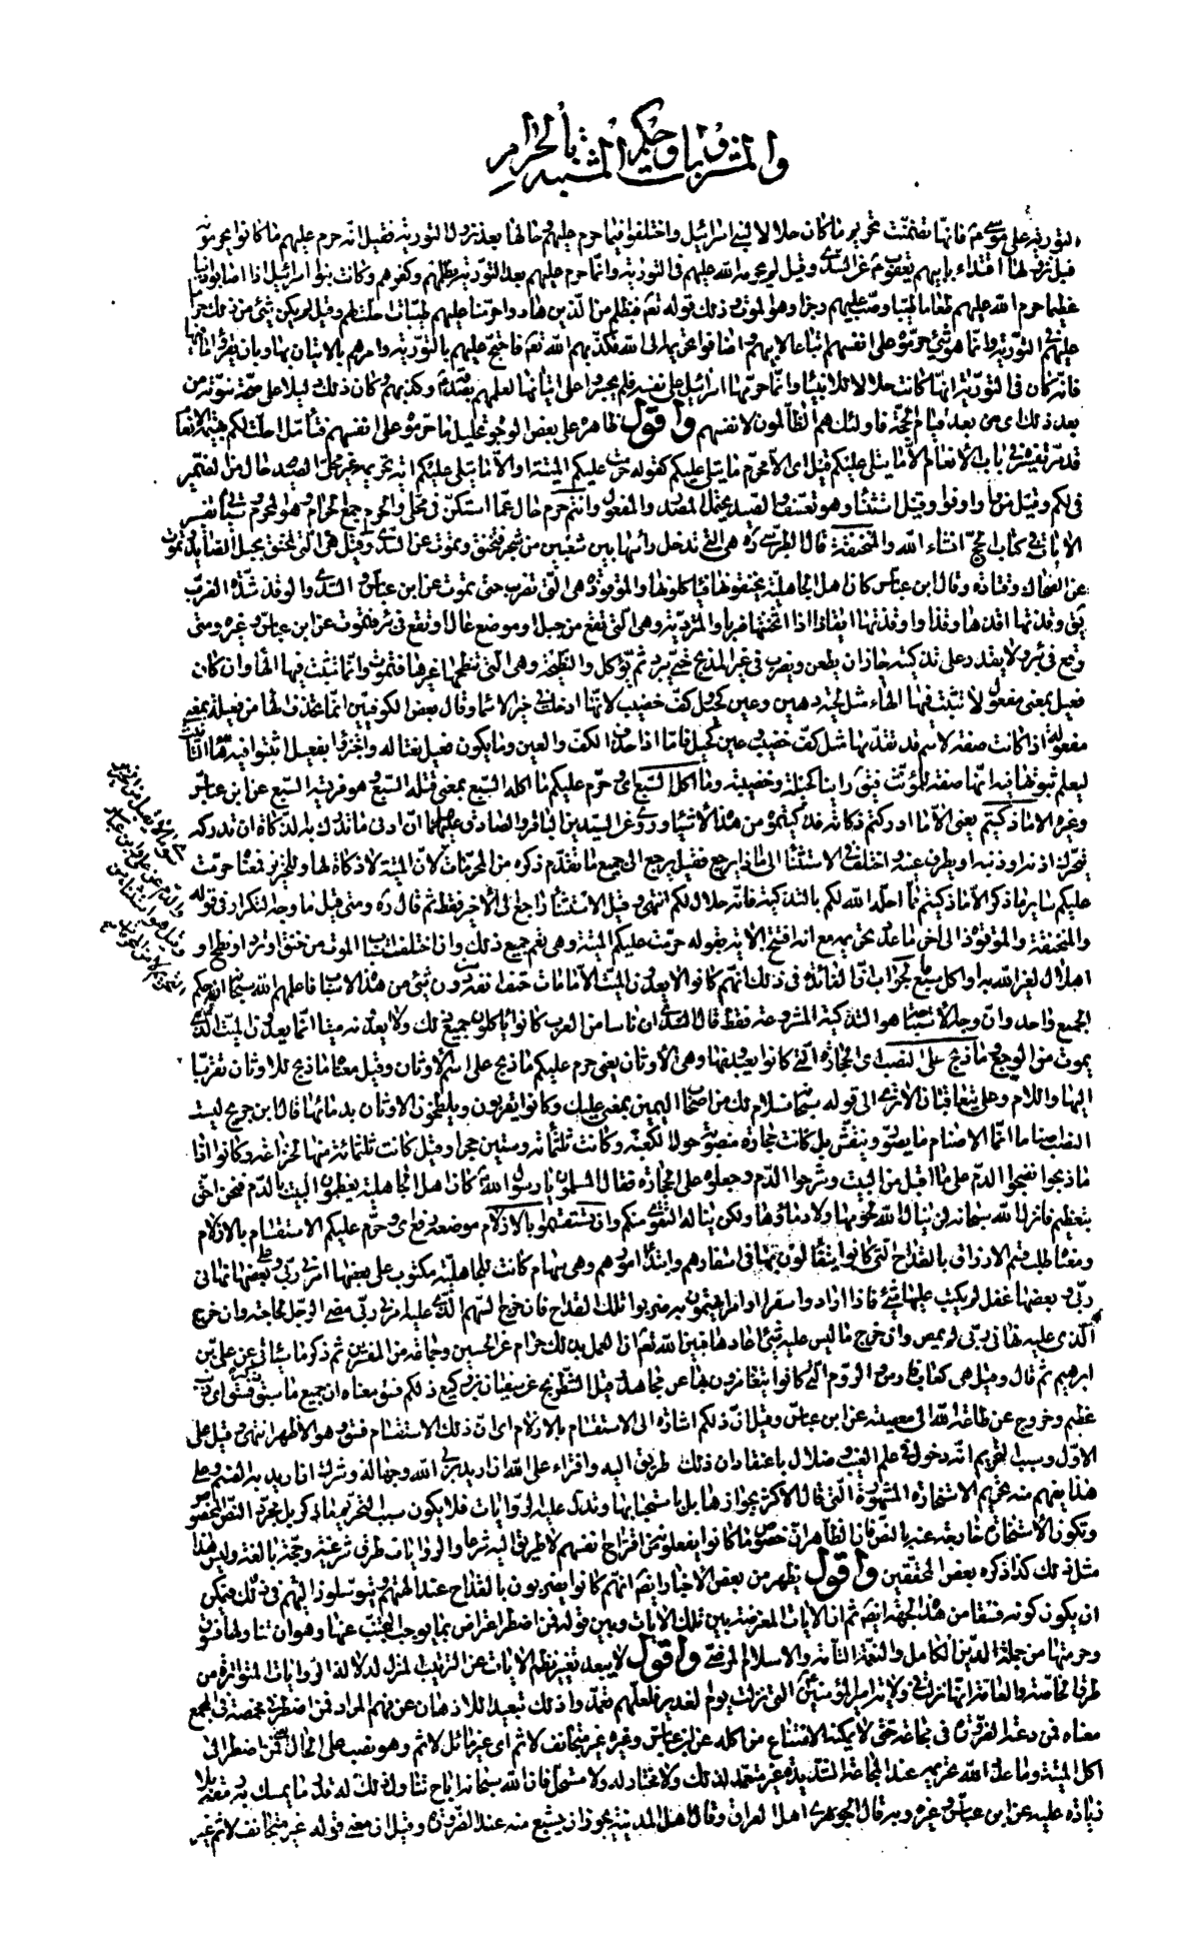 والمشروبات وحكم المشتبه بالحرام
التورية على موسى ع فانها تضمنت تحريم ما كان حلالا لبني اسرائيل واختلفوا فيما حرم عليهم وحالها بعد نزول التورية فقيل انه حرم عليهم ما كانوا يحرمونه
قبل نزولها اقتداء بابيهم يعقوب ع عن السدي وقيل لم يحرمه الله عليهم في التورية وانما حرم عليهم بعد التورية بظلمهم وكفرهم وكانت بنوا اسرائيل اذا اصابوا ذنبا
عظيما حرم الله عليهم طعاما طيبا وصب عليهم رجزا وهو الموت وذلك قوله تعم فبظلم من الذين هادوا حرمنا عليهم طيبات احلت لهم وقيل لم يكن شيء من ذلك حراما
عليهم في التورية وانما هو شيء حرموه على انفسهم اتباعا لابيهم واضافوا تحريمه الى الله فكذبهم الله تعم فاحتج عليهم بالتورية وامرهم بالاتيان بها وبان يقرؤا ما فيها
فانه كان في التورية انها كانت حلالا للانبياء وانما حرمها اسرائيل على نفسه فلم يجسروا على اتيانها لعلمهم بصدقه وكذبهم وكان ذلك دليلا على صحة نبوته من
بعد ذلك اي من بعد قيام الحجة فاولئك هم الظالمون لانفسهم واقول ظاهره على بعض الوجوه تحليل ما حرموه على انفسهم فتأمل احلت لكم بهيمة الانعام
قد مر تفسيره في باب الانعام الا ما يتلى عليكم قيل اي الا محرم ما يتلى عليكم كقوله حرمت عليكم الميتة او الا ما يتلى عليكم اية تحريمه غير محلي الصيد حال من الضمير
في لكم وقيل من واو اوفوا وقيل استثناء وهو تعسف والصيد يحتمل المصدر والمفعول وانتم حرم حال عما استكن في محلي والحرم جمع حرام وهو المحرم سيأتي تفسير
الايات في كتاب الحج انشاء الله والمنخنقة قال الطبرسي ره هي التي تدخل رأسها بين شعبتين من شجرة فتختنق وتموت عن السدي وقيل هي التي تختنق بحبل الصايد وتموت
عن الضحاك وقتادة وقال ابن عباس كان اهل الجاهلية يخنقونها فيأكلونها والموقوذة هي التي تضرب حتى تموت عن ابن عباس والسدي والوقذ شدة الضرب
يق وقذتها اقذها وقذا واوقذتها ايقاذا اذا اثخنتها ضربا والمتردية وهي التي تقع من جبل او موضع عال او تقع في بئر فتموت عن ابن عباس وغيره ومتى
وقع في بئر ولا يقدر على تذكيته جاز ان يطعن ويضرب في غير المذبح حتى يبرد ثم يؤكل والنطيحة وهي التي تنطحها غيرها فتموت وانما تثبت فيها الهاء وان كان
فعيل بمعنى مفعول لا تثبت فيها الهاء مثل لحية دهين وعين كحيل وكف خضيب لانها ادخلت في خبر الاسماء وقال بعض الكوفيين انما تحذف الهاء من فعيلة بمعنى
مفعولة اذا كانت صفة لاسم قد تقدمها مثل كف خضيب وعين كحيل فاما اذا حذف الكف والعين وما يكون فعيل نعتا له واجتزؤا بفعيل اثبتوا فيه هاء التأنيث
ليعلم بثبوتها فيه انها صفة لمؤنث فيق رأينا كحيلة وخضيبة وما اكل السبع اي وحرم عليكم ما اكله السبع بمعنى قتله السبع وهو فريسة السبع عن ابن عباس
وغيره الا ما ذكيتم يعني الا ما ادركتم ذكاته فذكيتموه من هذه الاشياء وروي عن السيدين الباقر والصادق عليهما ان ادنى ما تدرك به الذكاة ان تدركه
يتحرك اذنه او ذنبه او يطرف عينه واختلف في الاستثناء الى ماذا يرجع فقيل يرجع الى جميع ما تقدم ذكره من المحرمات
لان الميتة لا ذكاة لها ولا الخنزير فمعناه حرمت
عليكم سائر ما ذكر الا ما ذكيتم مما احله الله لكم بالتذكية فانه حلال لكم انتهى وقيل الاستثناء راجع الى الاخير فقط ثم قال ره ومتى قيل ما وجه التكرار في قوله
والمنخنقة والموقوذة الى اخر ما عدد تحريمه مع انه افتتح الاية بقوله حرمت عليكم الميتة وهي تعم جميع ذلك وان اختلفت اسباب الموت من خنق او ترد او نطح او
اهلال لغير الله به او اكل سبع فالجواب ان الفائدة في ذلك انهم كانوا لا يعدون الميت الا ما مات حتف انفه دون شيء من هذه الاسباب فاعلمهم الله سبحانه ان حكم
الجميع واحد وان وجه الاستباحة هو التذكية المشروعة فقط قال السدي ان ناسا من العرب كانوا يأكلون جميع ذلك ولا يعدونه ميتا انما يعدون الميت الذي
يموت من الوجع وما ذبح على النصب اي الحجارة التي كانوا يعبدونها وهي الاوثان يعني حرم عليكم ما ذبح على اسم الاوثان وقيل معناه ما ذبح للاوثان تقربا
اليها واللام وعلى يتعاقبان الا ترى الى قوله سبحانه فسلام لك من اصحاب اليمين بمعنى عليك وكانوا يقربون ويلطخون الاوثان بدمائها قال ابن جريج ليست
النصب اصناما انما الاصنام ما يصور وينقش بل كانت حجارة منصوبة حول الكعبة وكانت ثلثمائة وستين حجرا وقيل كانت ثلثمائة منها لخزاعة وكانوا اذا
ما ذبحوا نضحوا الدم على ما اقبل من البيت وشرحوا الدم وجعلوه على الحجارة فقال المسلمون يا رسول الله كان اهل الجاهلية يعظمون البيت بالدم فنحن احق
بتعظيمه فانزل الله سبحانه لن ينال الله لحومها ولا دماؤها ولكن يناله التقوى منكم وان تستقسموا بالازلام موضعه رفع اي وحرم عليكم الاستقسام بالازلام
ومعناه طلب قسم الارزاق بالقداح التي كانوا يتفألون بها في اسفارهم وابتداء امورهم وهي سهام كانت للجاهلية مكتوب على بعضها امرني ربي وعلى بعضها نهاني
ربي وبعضها غفل لم يكتب عليها شيء فاذا ارادوا سفرا او امرا يهتمون به ضربوا تلك القداح فان خرج السهم الذي عليه امرني ربي مضى الرجل لحاجته وان خرج
الذي عليه نهاني ربي لم يمض وان خرج ما ليس عليه شيء اعادها فبين الله تعم ان العمل بذلك حرام عن الحسن وجماعة من المفسرين ثم ذكر ما سيأتي عن علي بن
ابرهيم ثم قال وقيل هي كعاب فارس والروم التي كانوا يتقامرون بها عن مجاهد وقيل الشطرنج عن سفيان بن وكيع ذلكم فسق معناه ان جميع ما سبق فسق اي ذنب
عظيم وخروج عن طاعة الله الى معصيته عن ابن عباس وقيل ان ذلكم اشارة الى الاستقسام بالازلام اي ان ذلك الاستقسام فسق وهو الاظهر انتهى وقيل على
الاول وسبب التحريم انه دخول في علم الغيب وضلال باعتقاد ان ذلك طريق اليه وافتراء على الله ان اريد بربي الله وجهالة وشرك ان اريد به الصنم وعلى
هذا يفهم منه تحريم الاستخارة المشهورة التي قال الاكثر بجوازها بل باستحبابها وتدل عليه الروايات فلا يكون سبب التحريم ما ذكر بل مجرد النص المخصوص
وتكون الاستخارة خارجة عنه بالنص فان الظاهر ان خصوص ما كانوا يفعلونه من اقتراح انفسهم لا طريق اليه شرعا والروايات طرق شرعية وحجة بالغة وليس هذا
مثل ذلك كذا ذكره بعض المحققين واقول يظهر من بعض الاخبار ايضا انهم كانوا يضربون بالقداح عند الهتهم ويتوسلون اليهم في ذلك فيمكن
ان يكون كونه فسقا من هذه الجهة ايضا ثم ان الايات المعترضة بين تلك الايات وبين قوله فمن اضطر اعتراض بما يوجب التجنب عنها وهو ان تناولها فسوق
وحرمتها من جملة الدين الكامل والنعمة التامة والاسلام المرضي واقول لا يبعد تغيير نظم الايات عن الترتيب المنزل لدلالة الروايات المتواترة من
طرق الخاصة والعامة انها نزلت في ولاية امير المؤمنين التي نزلت يوم الغدير فلعلهم تعمدوا ذلك تبعيدا للاذهان عن فهم المراد فمن اضطر في مخمصة في المجمع
معناه فمن دعته الضرورة في مجاعة حتى لا يمكنه الامتناع من اكله عن ابن عباس وغيره غير متجانف لاثم اي غير مائل لاثم وهو نصب على الحال فمن اضطر الى
اكل الميتة وما عدد الله تحريمه عند المجاعة الشديدة غير متعمد لذلك ولا مختار له ولا مستحل فان الله سبحانه اباح تناول ذلك له قدر ما يمسك به رمقه بلا
زيادة عليه عن ابن عباس وغيره وبه قال اهل العراق وقال اهل المدينة يجوز ان يشبع منه عند الضرورة وقيل ان معنى قوله غير متجانف لاثم غير